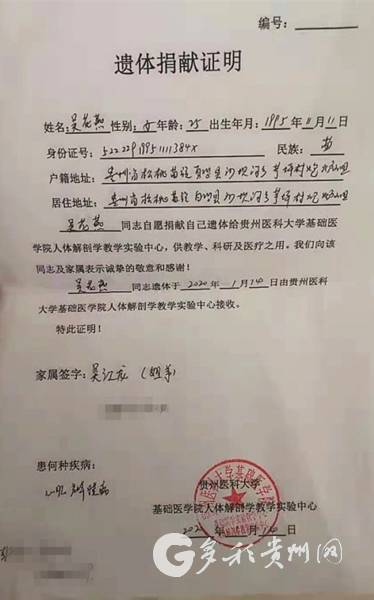 编号：
遗体捐献证明
姓名：吴花燕 性别：女 年龄：25 出生年月：1995年11月11日
身份证号：52222919951111384X 民族：苗
户籍地址：贵州省松桃苗族自治县沙坝河乡茅坪村
居住地址：贵州省松桃苗族自治县沙坝河乡茅坪村
吴花燕 同志自愿捐献自己遗体给贵州医科大学基础医
学院人体解剖学教学实验中心，供教学、科研及医疗之用。我们向该
同志及家属表示诚挚的敬意和感谢！
吴花燕 同志遗体于 2020 年 1 月 14 日由贵州医科
大学基础医学院人体解剖学教学实验中心接收。
特此证明！
家属签字：吴江龙（姐弟）
患何种疾病：
贵州医科大学
基础医学院人体解剖学教学实验中心
2020 年 日
多彩贵州网